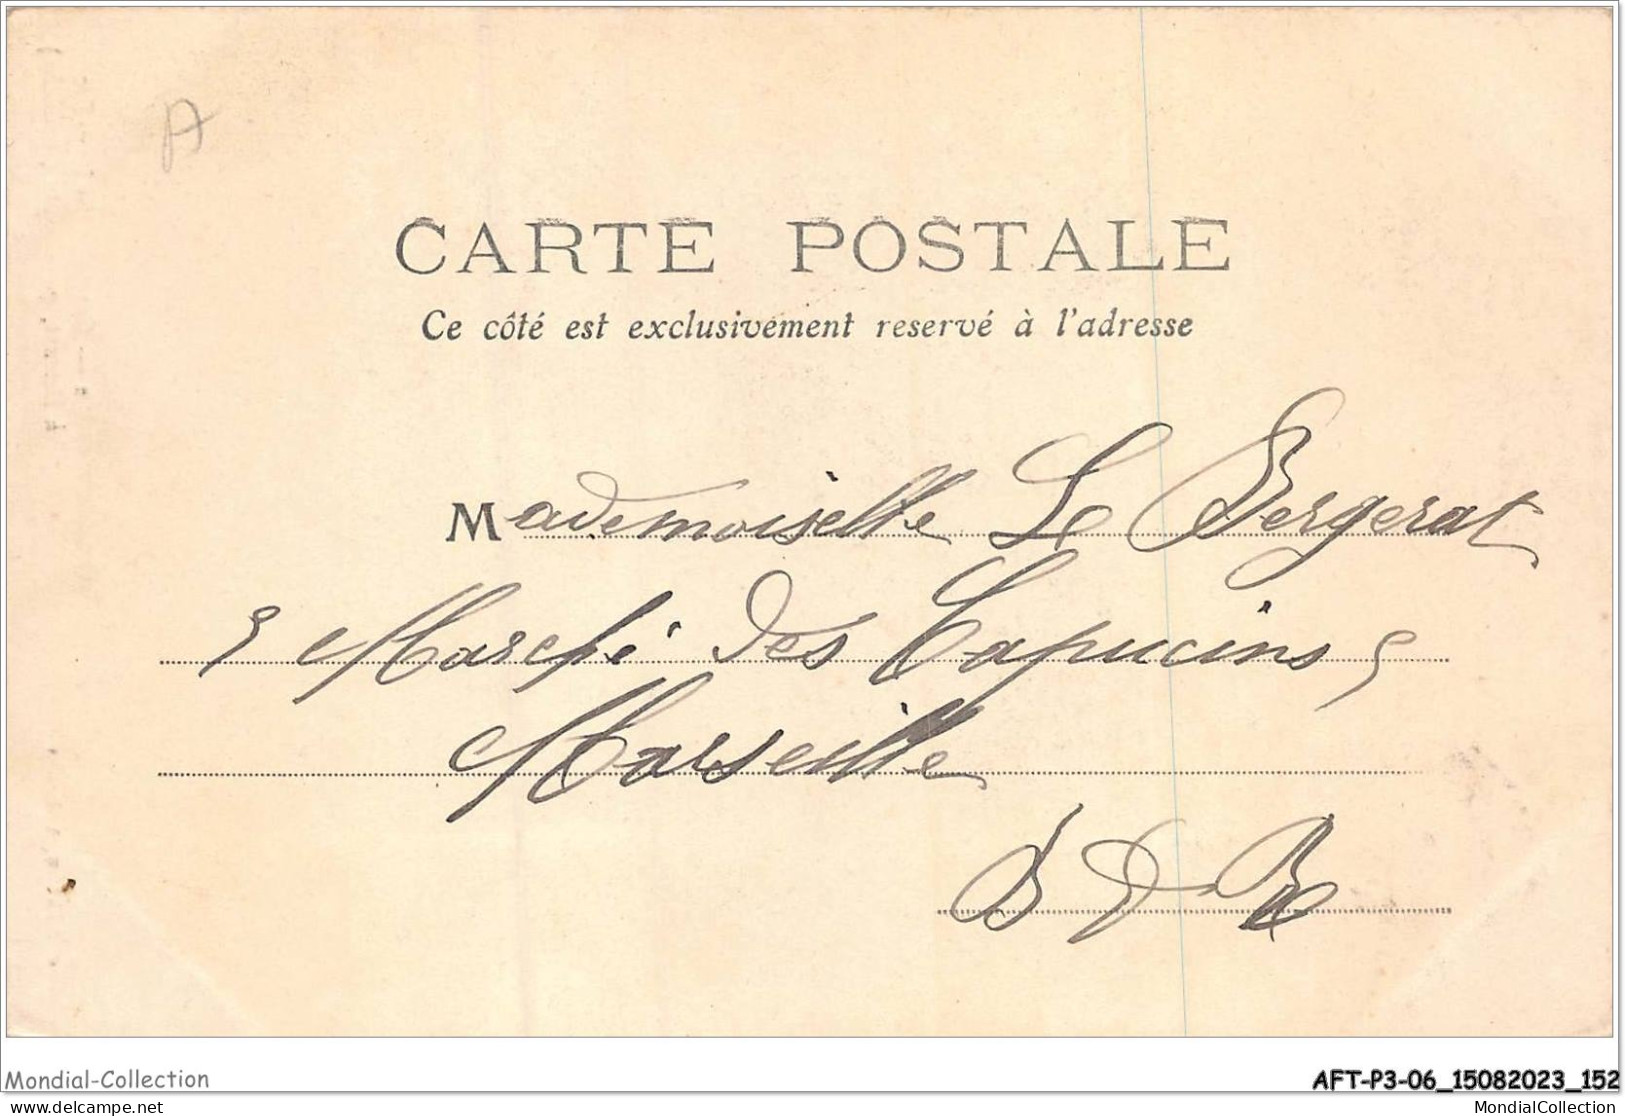 A
CARTE POSTALE
Ce côté est exclusivement reservé à l'adresse
Mademoiselle Le Bergerat
9 Marché des Capucins 9
Marseille
B D R
Mondial-Collection
AFT-P3-06_15082023_152
MondialCollection